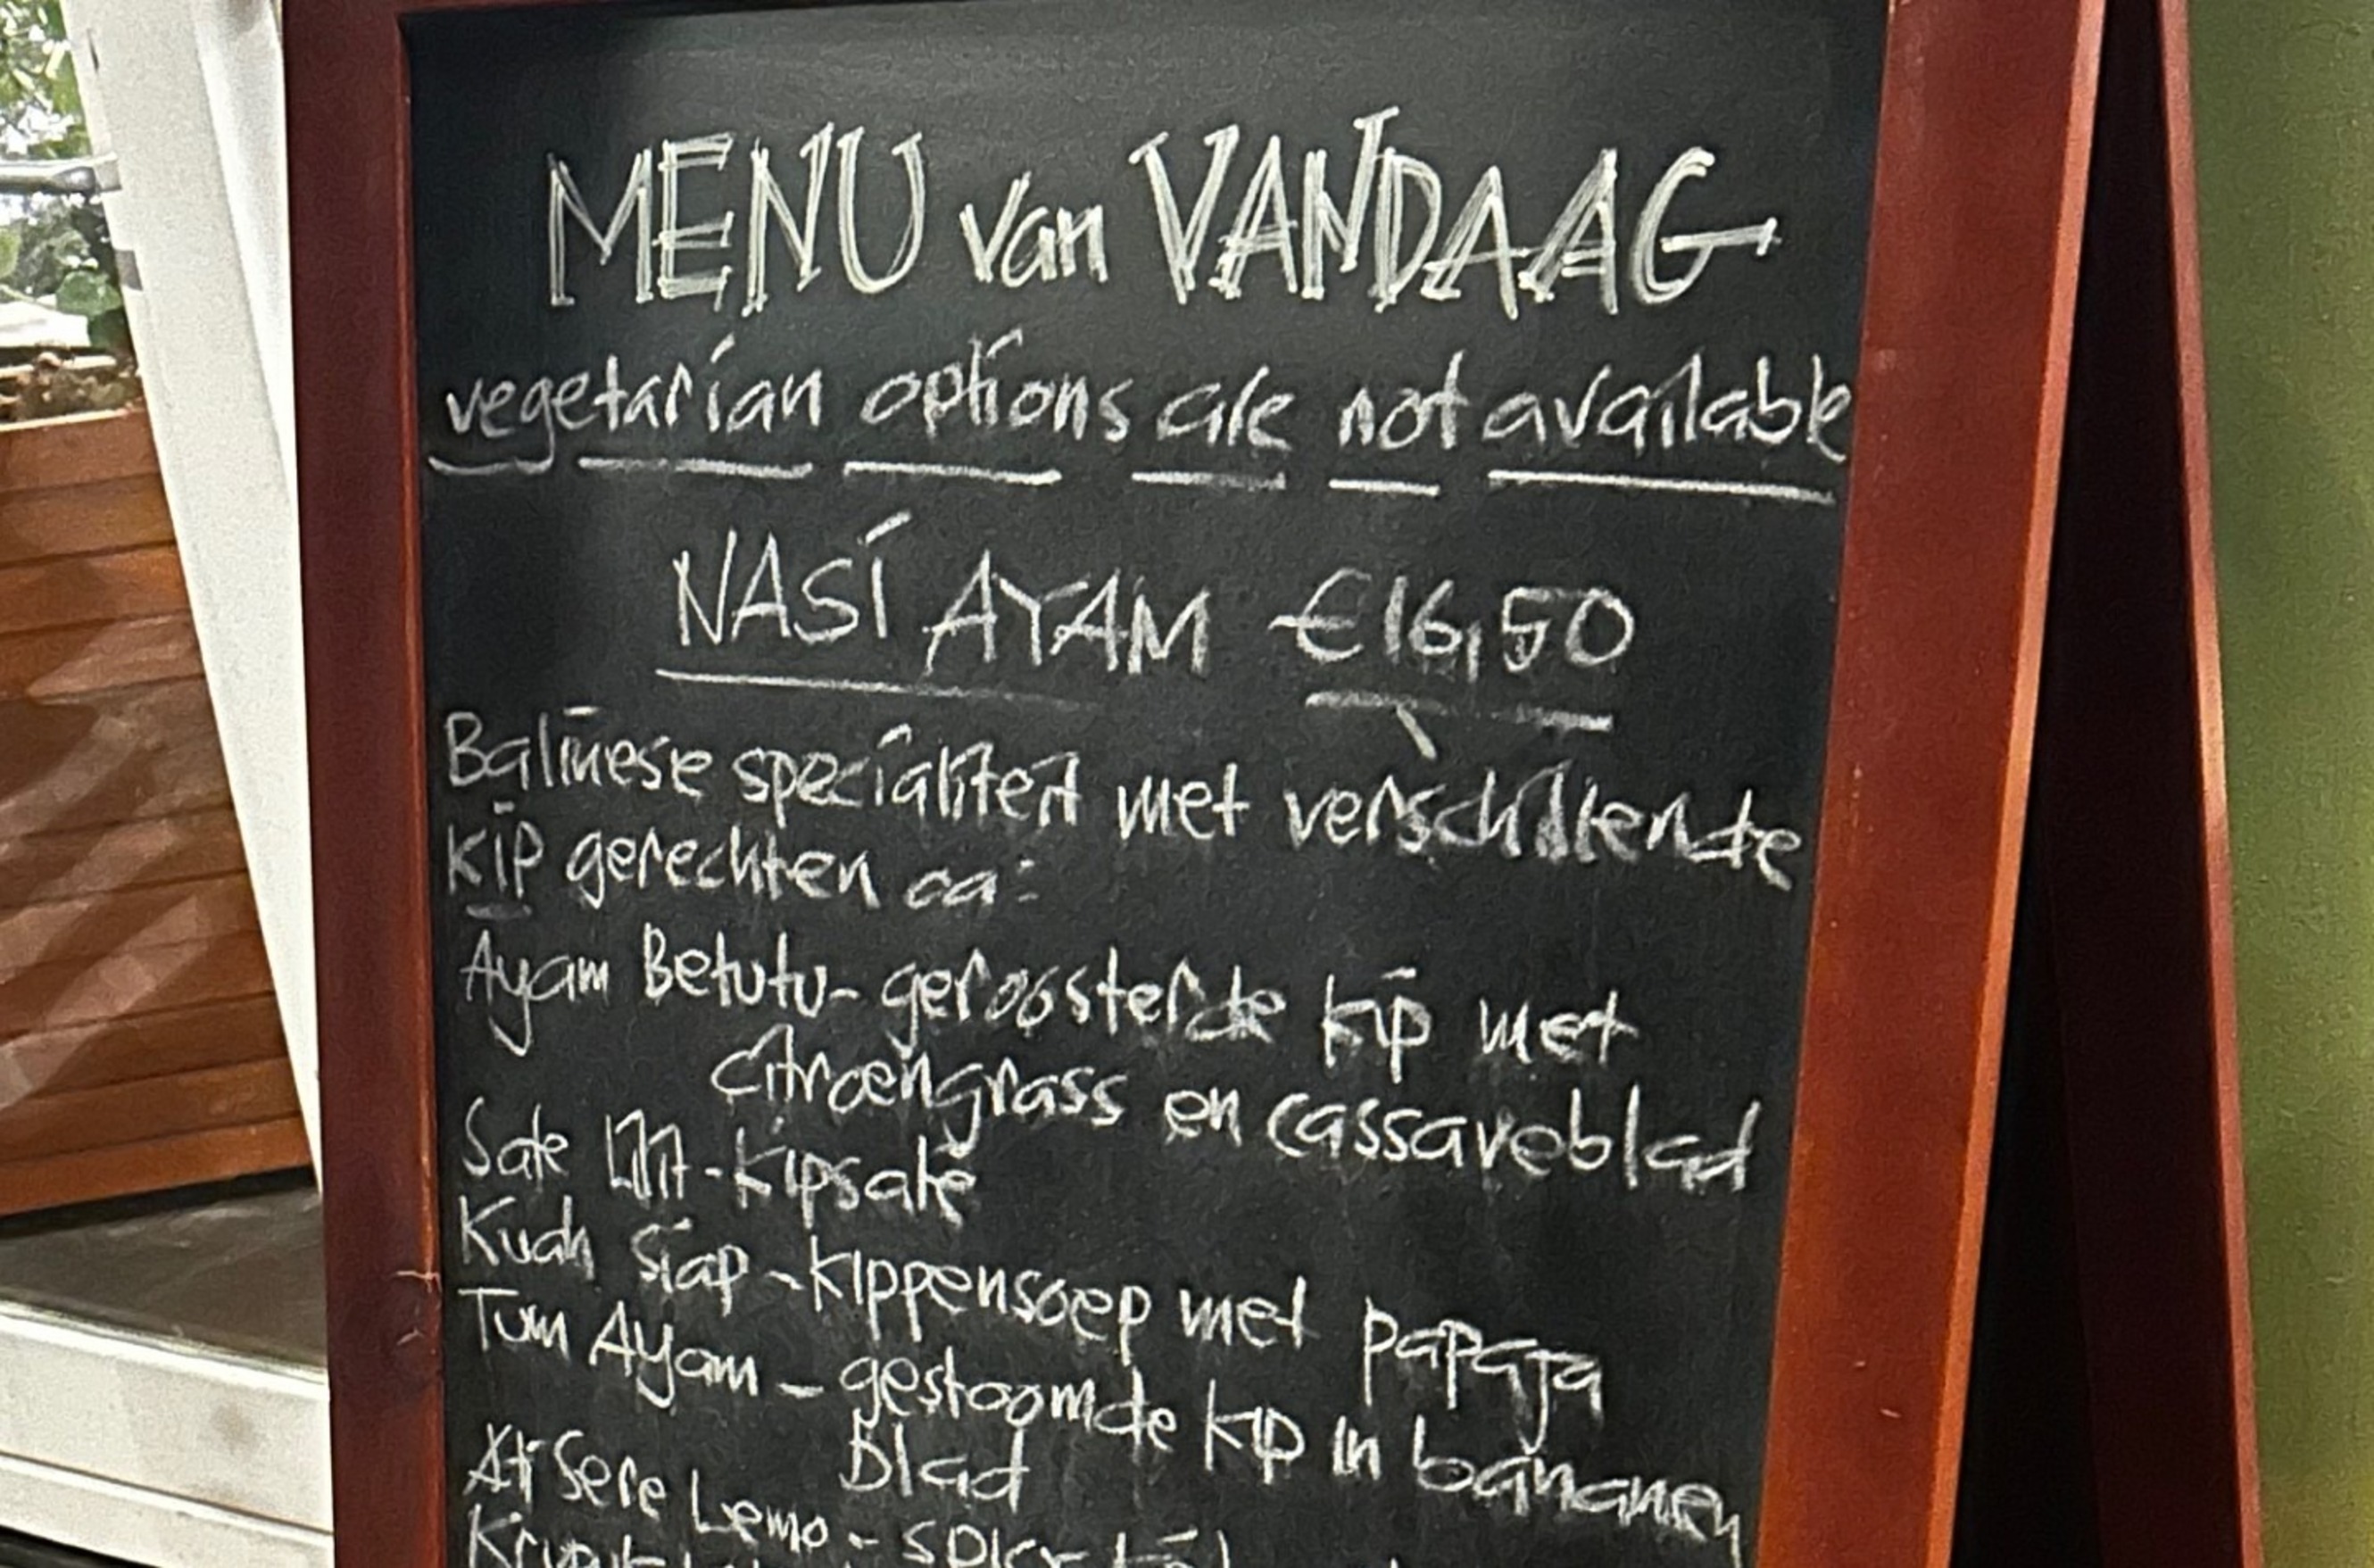 MENU van VANDAAG
vegetarian options are not available
NASI AYAM €16,50
Balinese specialiteit met verschillende
kip gerechten oa:
Ayam Betutu - geroosterde kip met
citroengrass en cassaveblad
Sate Lilit - kipsaté
Kuah Siap - kippensoep met papaja
Tum Ayam - gestoomde kip in bananen
Blad
Ati Sere Lemo - spicy